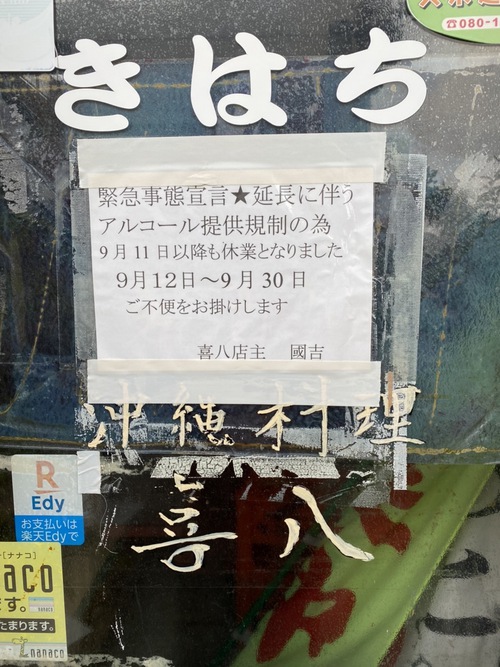 きはち
080-1
緊急事態宣言★延長に伴う
アルコール提供規制の為
9月11日以降も休業となりました
9月12日～9月30日
ご不便をお掛けします
喜八店主 國吉
沖縄料理
喜八
R
Edy
お支払いは
楽天Edyで
[ナナコ]
naco
ます。
たまります。
nanaco